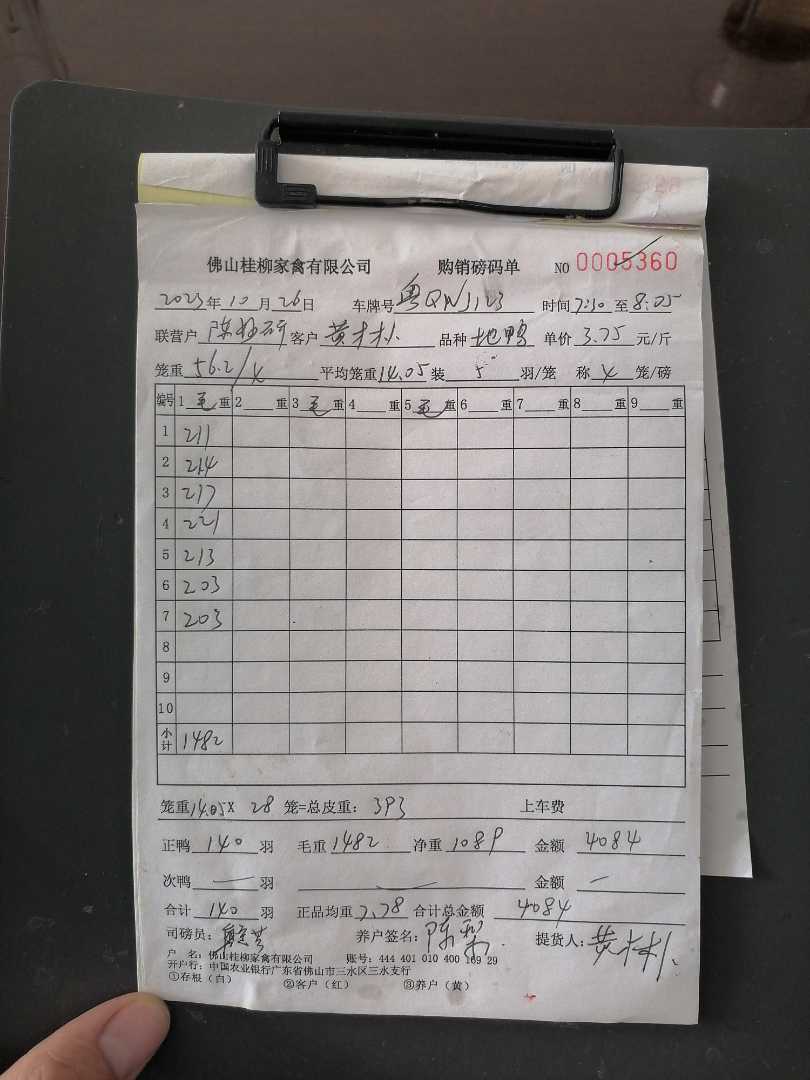 佛山桂柳家禽有限公司 购销磅码单 NO 0005360
2023年10月26日 车牌号 粤QNJ123 时间7:30至8:05
联营户 陈 客户 黄木朴 品种 地鸭 单价 3.75 元/斤
笼重 56.2/4 平均笼重14.05装 5 羽/笼 称 4 笼/磅
编号 1 毛 重 2 重 3 毛 重 4 重 5 毛 重 6 重 7 重 8 重 9 重
1 211
2 214
3 217
4 221
5 213
6 203
7 203
8
9
10
小计 1482
笼重14.05X 28 笼=总皮重: 393 上车费
正鸭 140 羽 毛重1482 净重1089 金额 4084
次鸭 — 羽 — 金额 —
合计 140 羽 正品均重7.78 合计总金额 4084
司磅员: 养户签名: 陈 提货人: 黄木朴
户 名: 佛山桂柳家禽有限公司 账号: 444 401 010 400 169 29
开户行: 中国农业银行广东省佛山市三水区三水支行
①存根(白) ②客户(红) ③养户(黄)